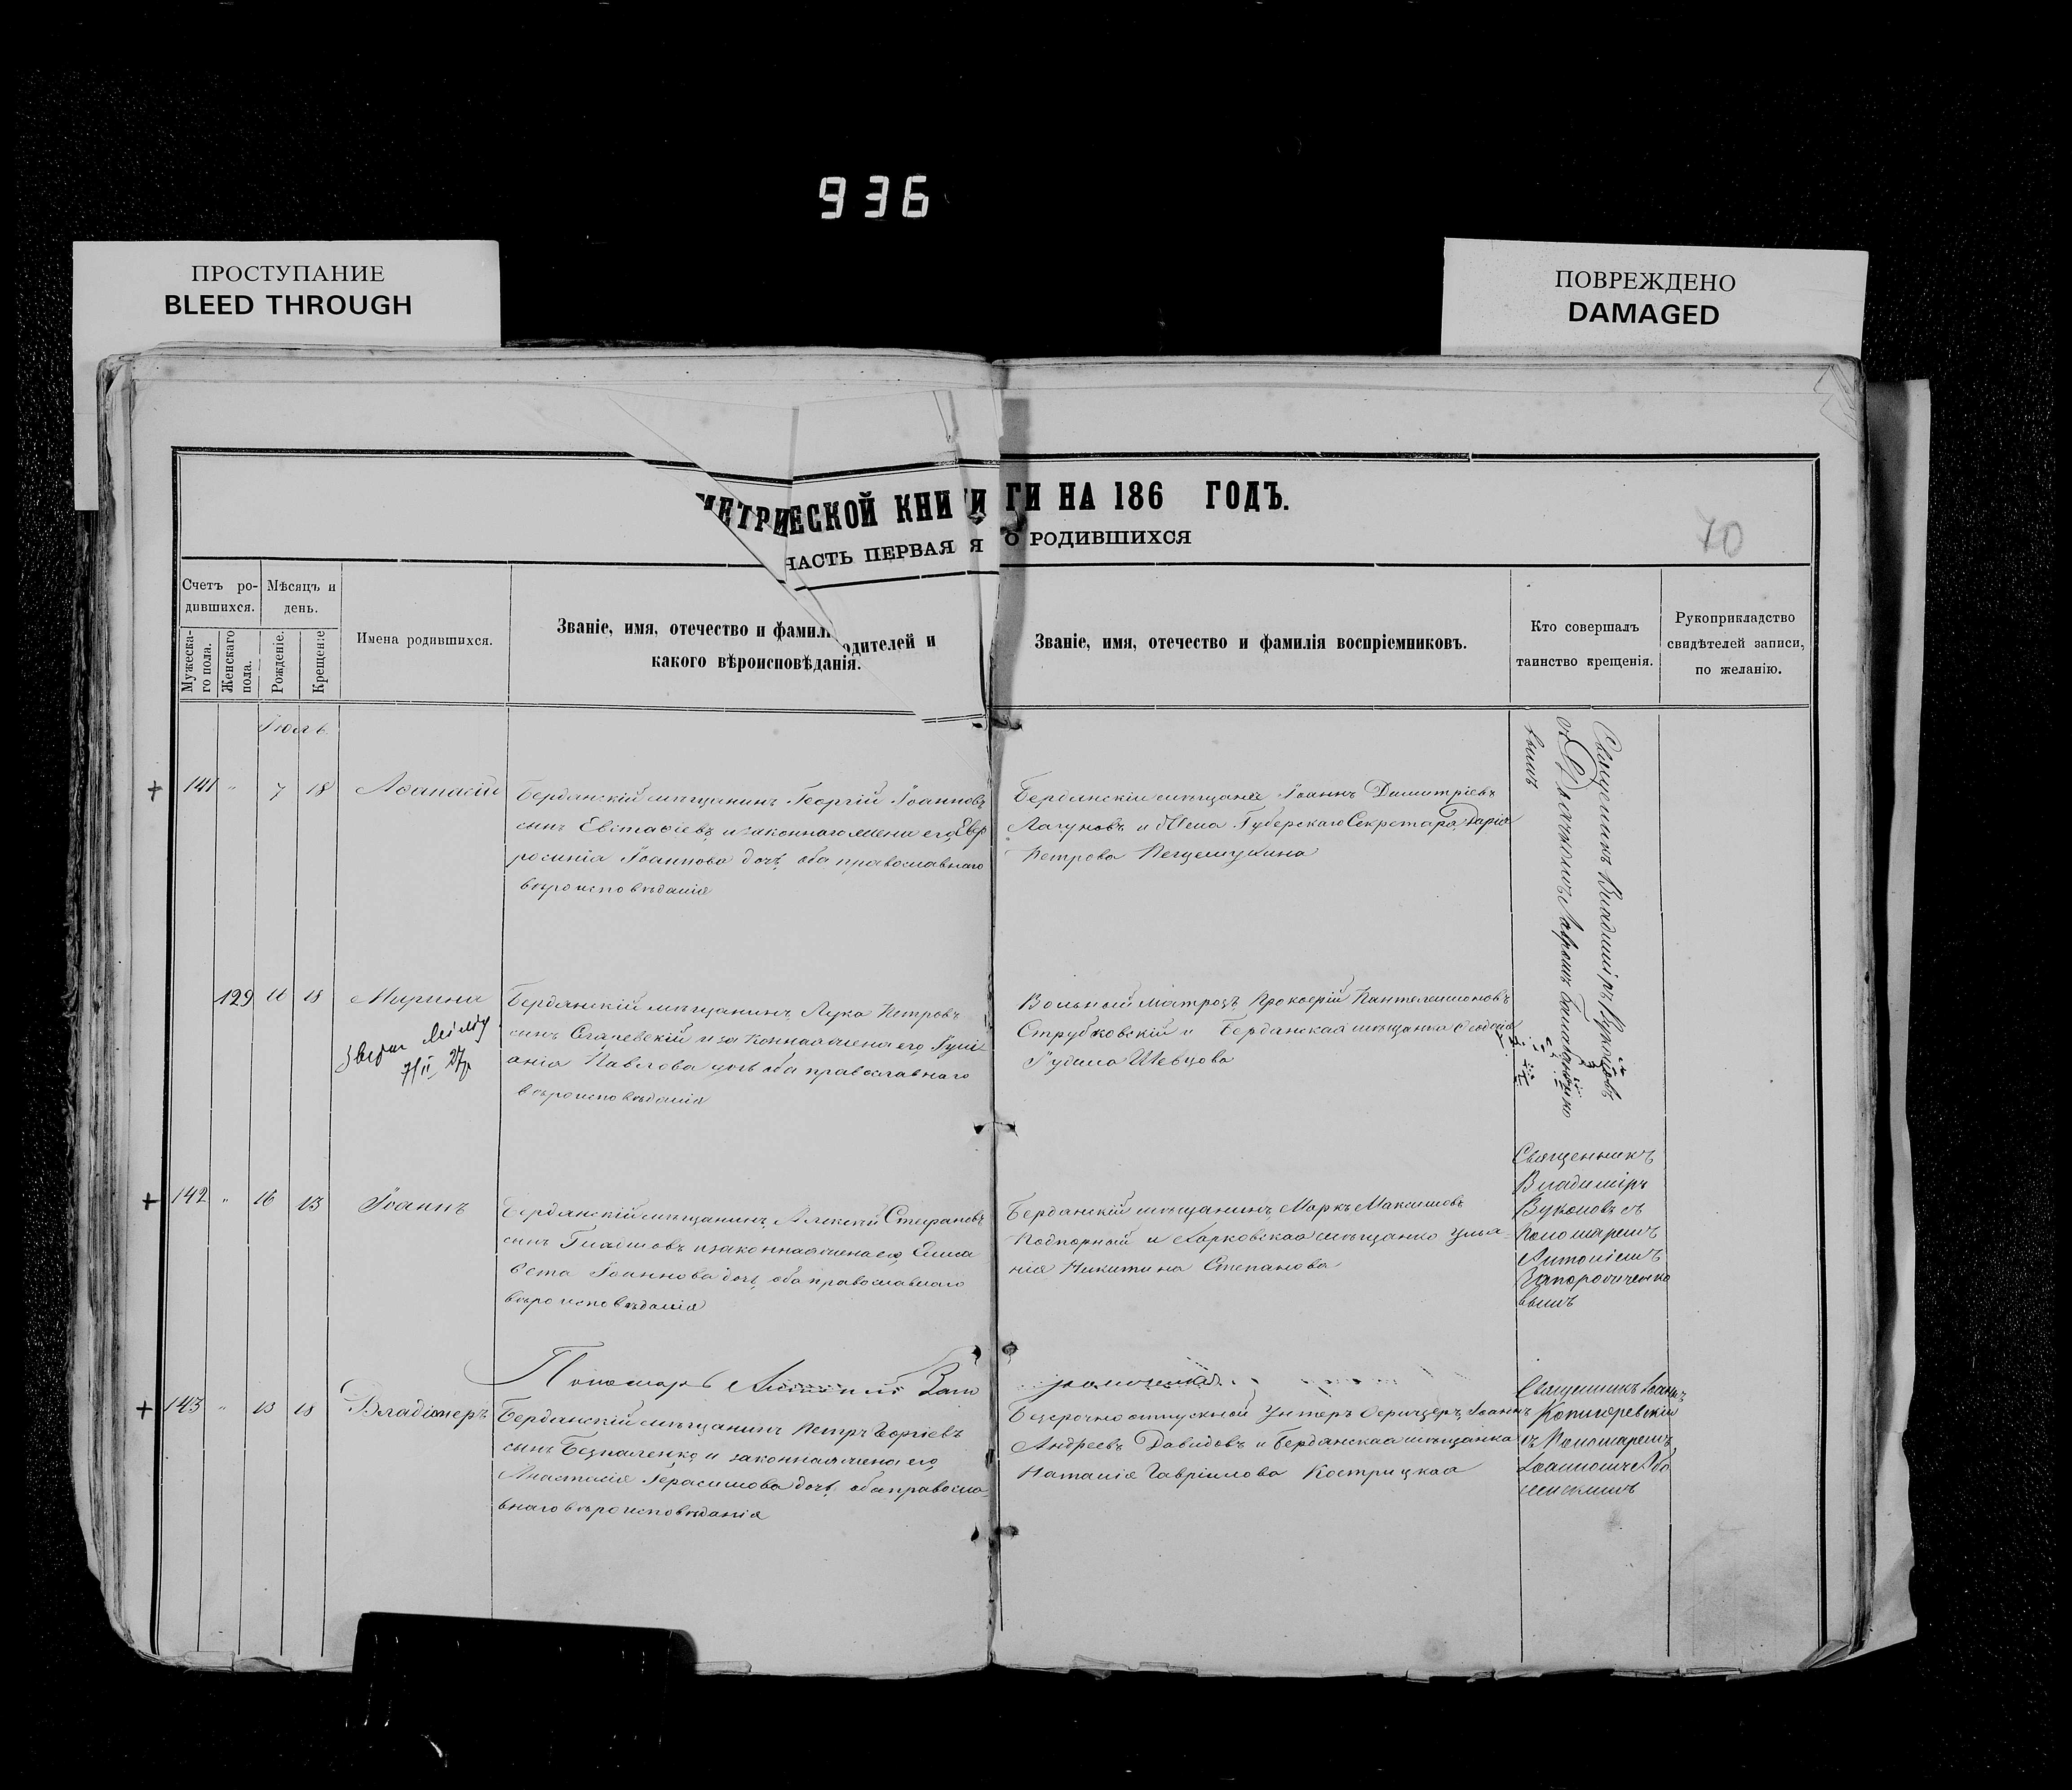 936
ПРОСТУПАНИЕ
BLEED THROUGH
ПОВРЕЖДЕНО
DAMAGED
МЕТРИЧЕСКОЙ КНИГИ НА 186 ГОДЪ.
ЧАСТЬ ПЕРВАЯ О РОДИВШИХСЯ
70
Счетъ ро-
дившихся.
Мужеска-
го пола.
Женскаго
пола.
Мѣсяцъ и
день.
Рожденіе.
Крещеніе
Имена родившихся.
Званіе, имя, отечество и фамил
одителей и
какого вѣроисповѣданія.
Званіе, имя, отечество и фамилія воспріемниковъ.
Кто совершалъ
таинство крещенія.
Рукоприкладство
свидѣтелей записи,
по желанію.
Іюль
141 " 7 18 Аѳанасій
Бердянскій мѣщанинъ Георгій Іоанновъ
сынъ Евстаѳіевъ и законная жена его Евф
росинія Іоаннова дочь, оба православнаго
вѣроисповѣданія
Бердянскій мѣщанинъ Іоаннъ Димитріевъ
Лагуновъ и жена Губернскаго Секретаря Дарія
Петрова
Священникъ Владиміръ Вуколовъ
съ Дьячкомъ
129 11 18 Марина
7/II 27
Бердянскій мѣщанинъ Лука Петровъ
сынъ и законная жена его Іулі
анія Павлова дочь оба православнаго
вѣроисповѣданія
Вольный матрозъ Прокофій Пантелеимоновъ
Струбковскій и Бердянская мѣщанка Ѳеодосія
Шевцова
142 " 16 Іоаннъ
Бердянскій мѣщанинъ Алексій Стефановъ
сынъ и законная жена его Елиса
вета Іоаннова дочь, оба православнаго
вѣроисповѣданія
Бердянскій мѣщанинъ Маркъ Максимовъ
Подпорный и Харковская мѣщанка Улья-
нія Никитина Степанова
Священникъ
Владиміръ
Вуколовъ съ
Пономаремъ
Антоніемъ
Запорожченко
вымъ
Пономарь Антоній Запо
рожченко
143 " 13 18 Владиміръ
Бердянскій мѣщанинъ Петръ Георгіевъ
сынъ Безпаленко и законная жена его
Анастасія Герасимова дочь, оба правосла-
внаго вѣроисповѣданія
Безсрочноотпускной Унтеръ Офицеръ Іоаннъ
Андреевъ Давидовъ и Бердянская мѣщанка
Наталія Гавріилова Кострицкая
Священникъ Іоаннъ
Копигоревскій
съ Пономаремъ
Іоанномъ